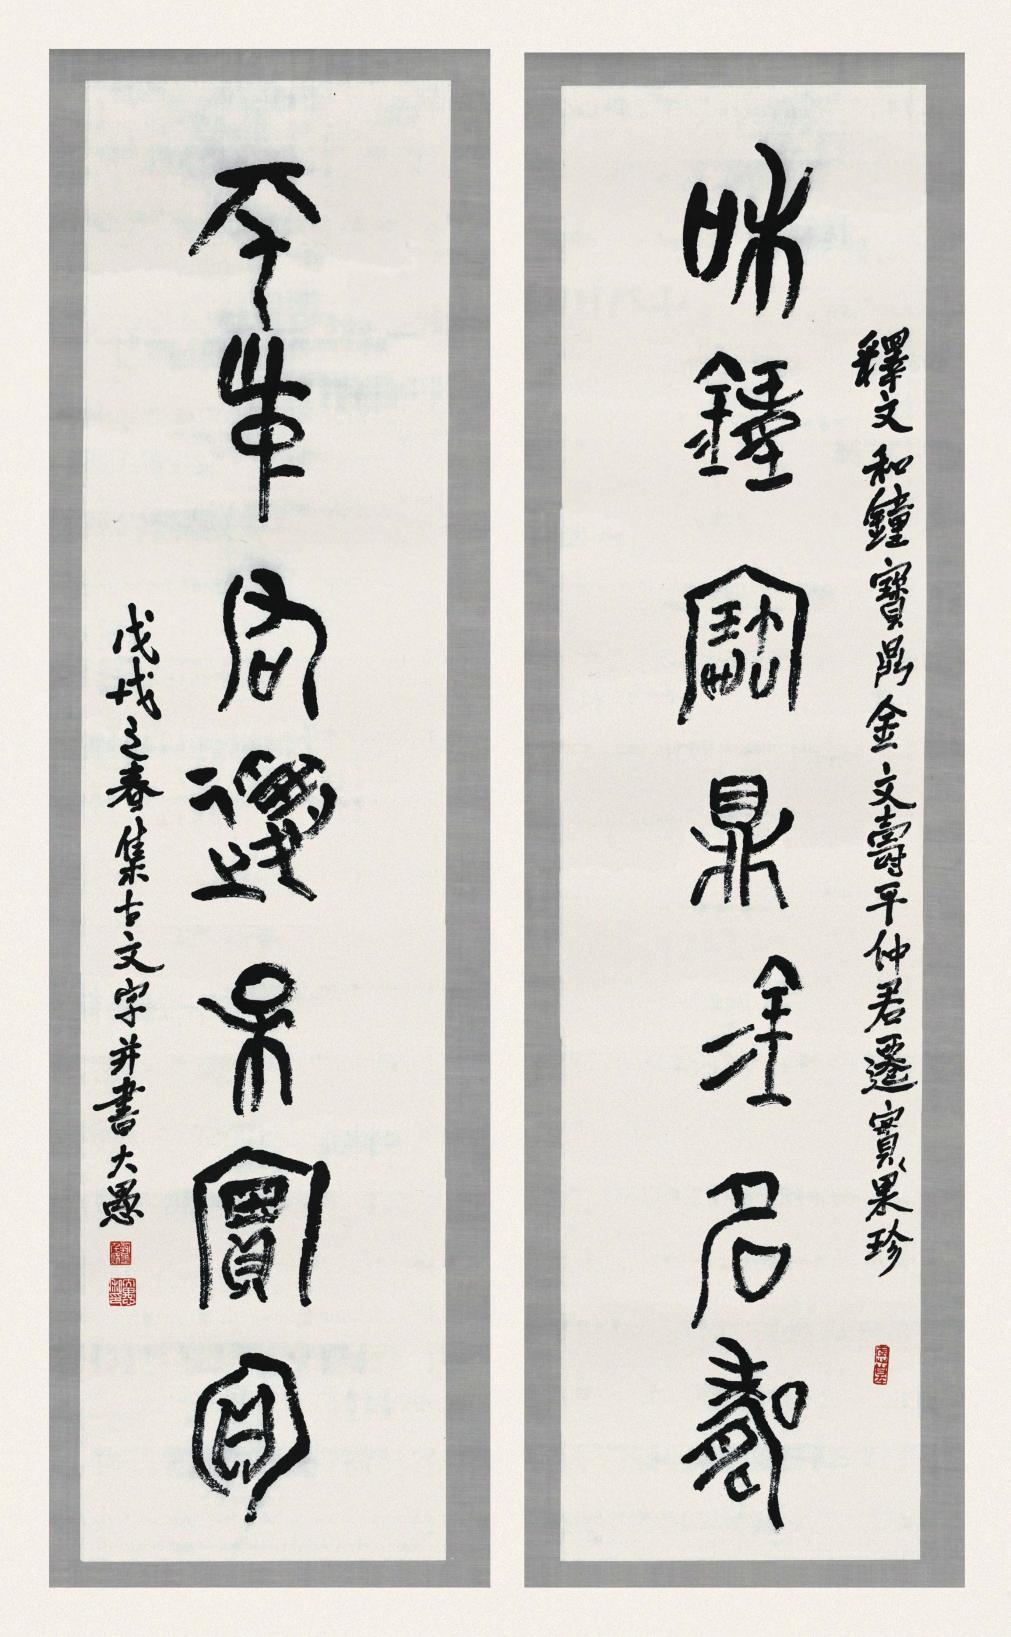 咊鐘寶鼎金石壽
釋文和鐘寶鼎金文壽平仲君遷實果珍
平仲君遷果實珍
戊戌之春集古文字并書大愚